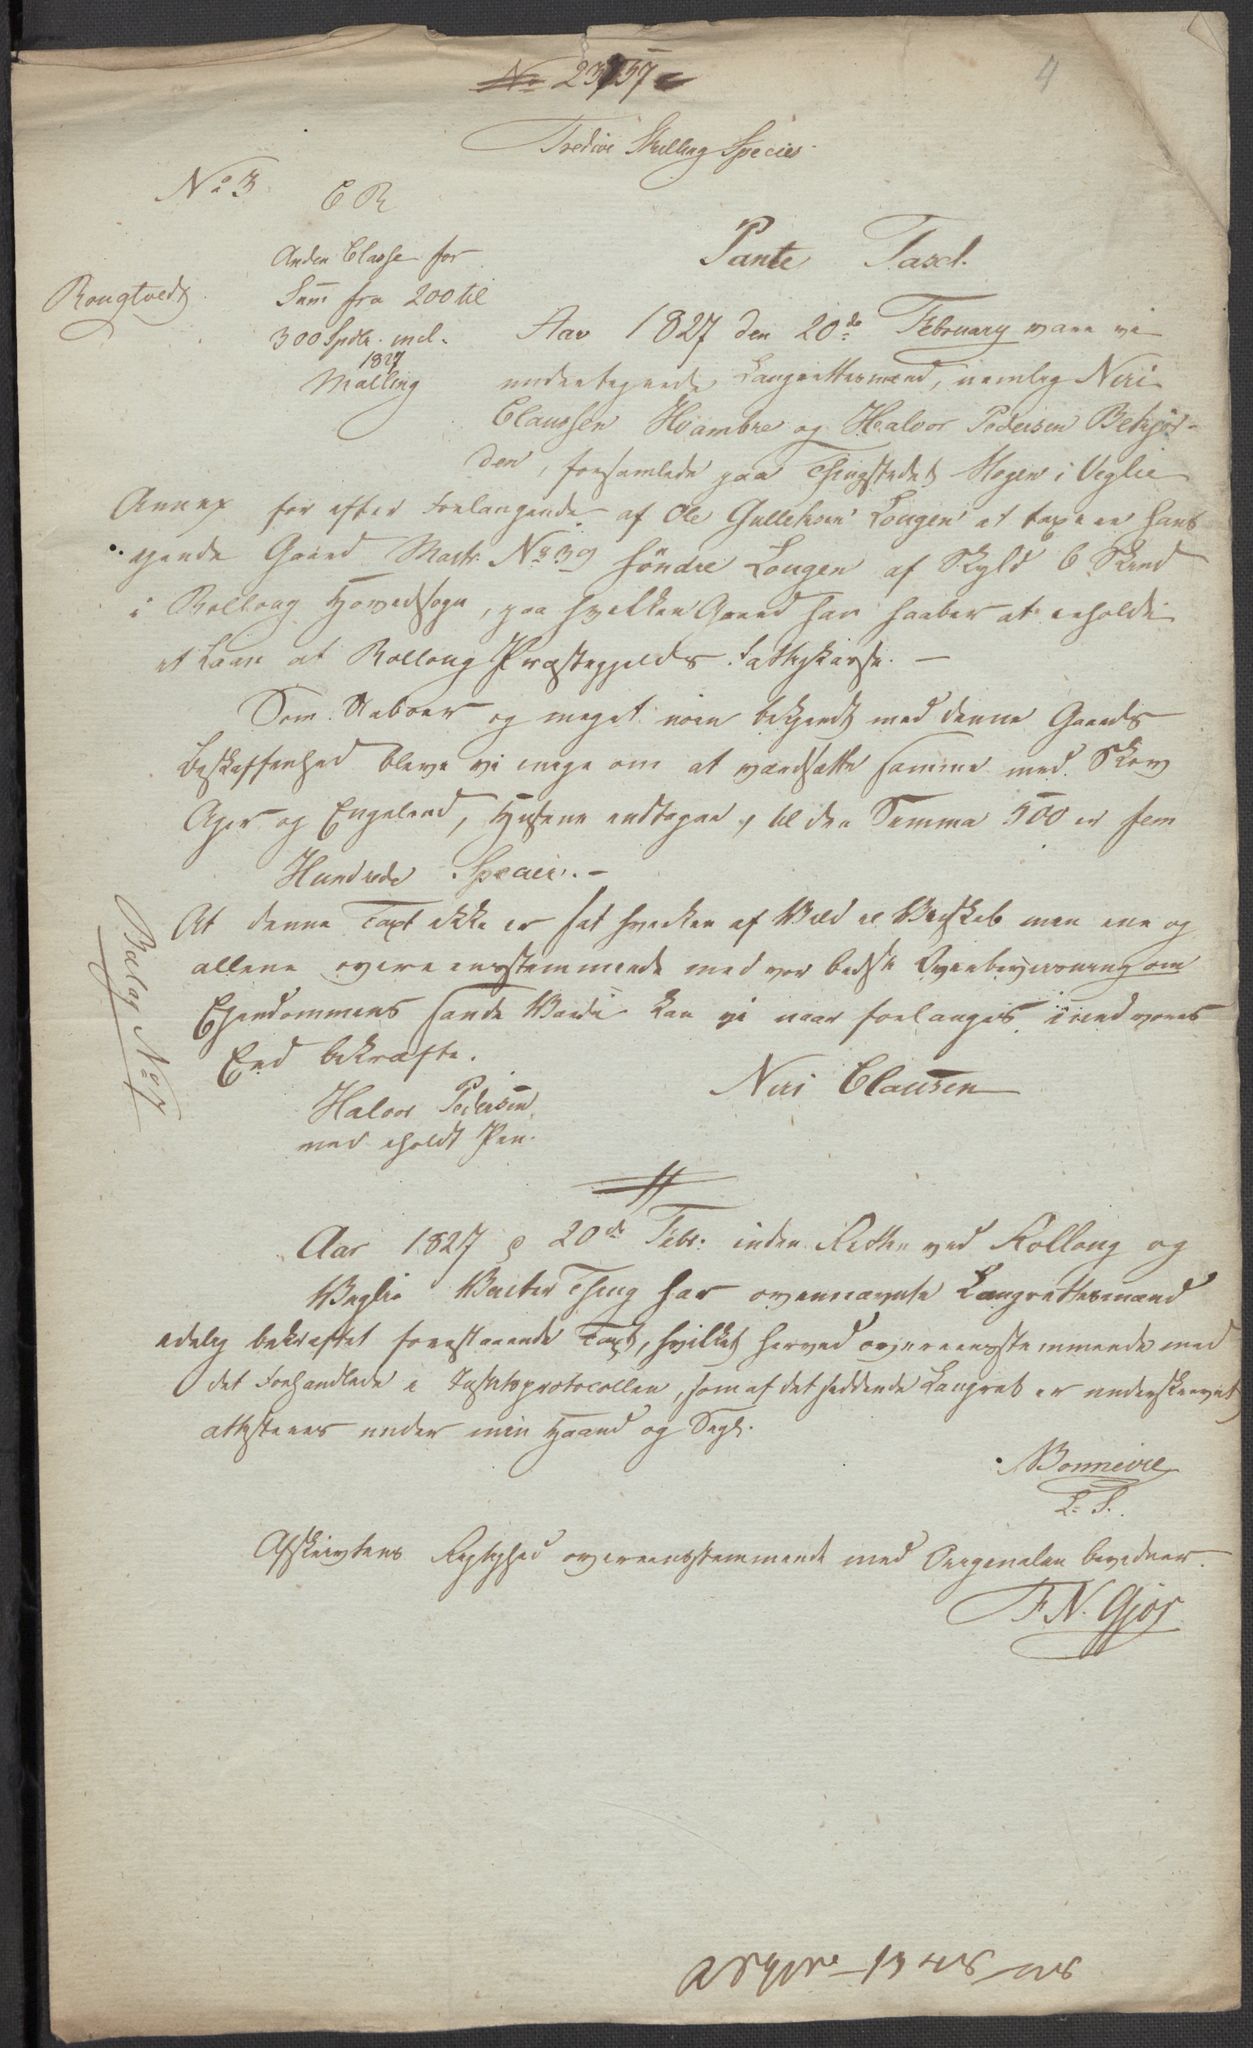 No 23757
4
Tredive Skilling Species
No 3
C R
Anden Classe for
Sum fra 200 til
300 Spdlr. incl.
1827
Malling
Rougtvedt
Pante Taxt.
Aar 1827 den 20de February vare vi
undertegnede Laugrettesmænd, nemlig Neri
Claussen Hvambre og Halvor Pedersen Bekjor-
den, forsamlede paa Thingstedet Mogen i Veglie
Annex for efter Forlangende af Ole Gulleksen Lougen at taxere hans
ejende Gaard Matr. No 39 søndre Lougen af Skyld 6 Skind
i Rolloug Hovedsogn, paa hvilken Gaard han haaber at erholde
et Laan af Rolloug Præstegjelds Fattigkasse. —
Som Naboer og meget nøie bekjendt med denne Gaards
Beskaffenhed bleve vi enige om at værdsætte samme med Skov
Ager og Engeland, Husene undtagne, til den Summa 500 er fem
Hundrede Specier. —
At denne Taxt ikke er sat hverken af Vild el Venskab men ene og
allene overeensstemmende med vor bedste Overbeviisning om
Ejendommens sande Værdie kan vi naar forlanges med vores
Eed bekræfte.
Neri Claussen
Halvor Pedersen
med iholdt Pen.
Bilag No 7
Aar 1827 d 20de Febr: inden Retten ved Rolloug og
Veglie Vinter Thing har ovennævnte Laugrettesmænd
edelig bekræftet forestaaende Taxt, hvilket herved overeensstemmende med
det Forhandlede i Justitsprotocollen, som af det siddende Laugret er underskrevet,
attesteres under min Haand og Segl.
NBonnevie
L. S.
Afskrivtens Rigtighed overeensstemmende med Originalen bevidner.
F. N. Gjør